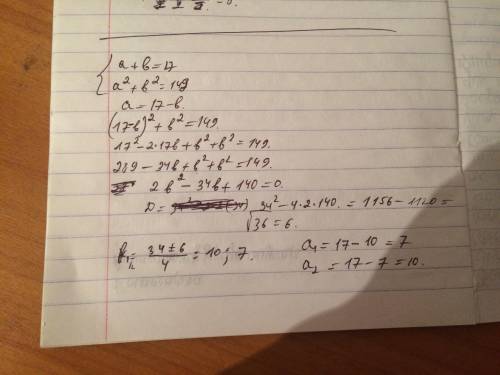 a + b = 17
a² + b² = 149
a = 17 - b.
(17-b)² + b² = 149.
17² - 2·17b + b² + b² = 149.
289 - 34b + b² + b² = 149.
2b² - 34b + 140 = 0.
D = 34² - 4·2·140. = 1156 - 1120 =
√36 = 6.
b₁,₂ = (34 ± 6)/4 = 10 ; 7.
a₁ = 17 - 10 = 7
a₂ = 17 - 7 = 10.